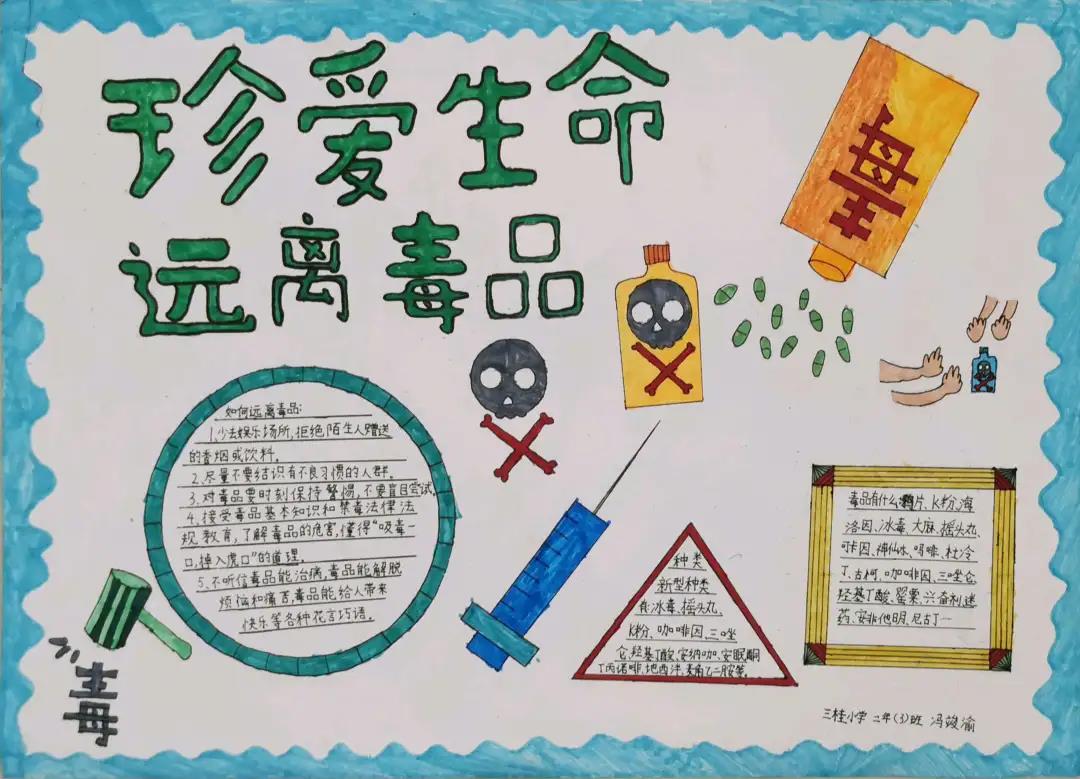 珍爱生命
远离毒品
毒
如何远离毒品:
1.少去娱乐场所,拒绝陌生人赠送
的香烟或饮料。
2.尽量不要结识有不良习惯的人群。
3.对毒品要时刻保持警惕,不要盲目尝试。
4.接受毒品基本知识和禁毒法律法
规教育,了解毒品的危害,懂得“吸毒一
口,掉入虎口”的道理。
5.不听信毒品能治病,毒品能解脱
烦恼和痛苦,毒品能给人带来
快乐等各种花言巧语。
毒
种类
新型种类
有:冰毒、摇头丸、
K粉、咖啡因、三唑
仑、羟基丁酸、安纳咖、安眠酮
丁丙诺啡、地西泮、麦角乙二胺等。
毒品有什么鸦片、K粉、海
洛因、冰毒、大麻、摇头丸、
可卡因、神仙水、吗啡、杜冷
丁、古柯、咖啡因、三唑仑、
羟基丁酸、罂粟、兴奋剂、迷
药、安非他明、尼古丁一
三桂小学 二年(3)班 冯竣渝